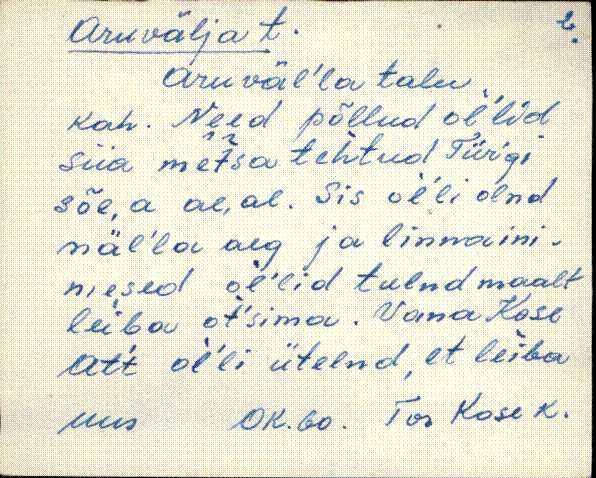 Aruvälja t. 2.
Aruväl'la talu
kah. Need põllud ol'lid
siia metsa tehtud Türgi
sõe,a ae,al. Sis ol'li olnd
näl'la aeg ja linnaini-
mesed ol'lid tulnd maalt
leiba ot'sima. Vana Kose
Att ol'li ütelnd, et leiba
OK. 60. Tor Kose k.